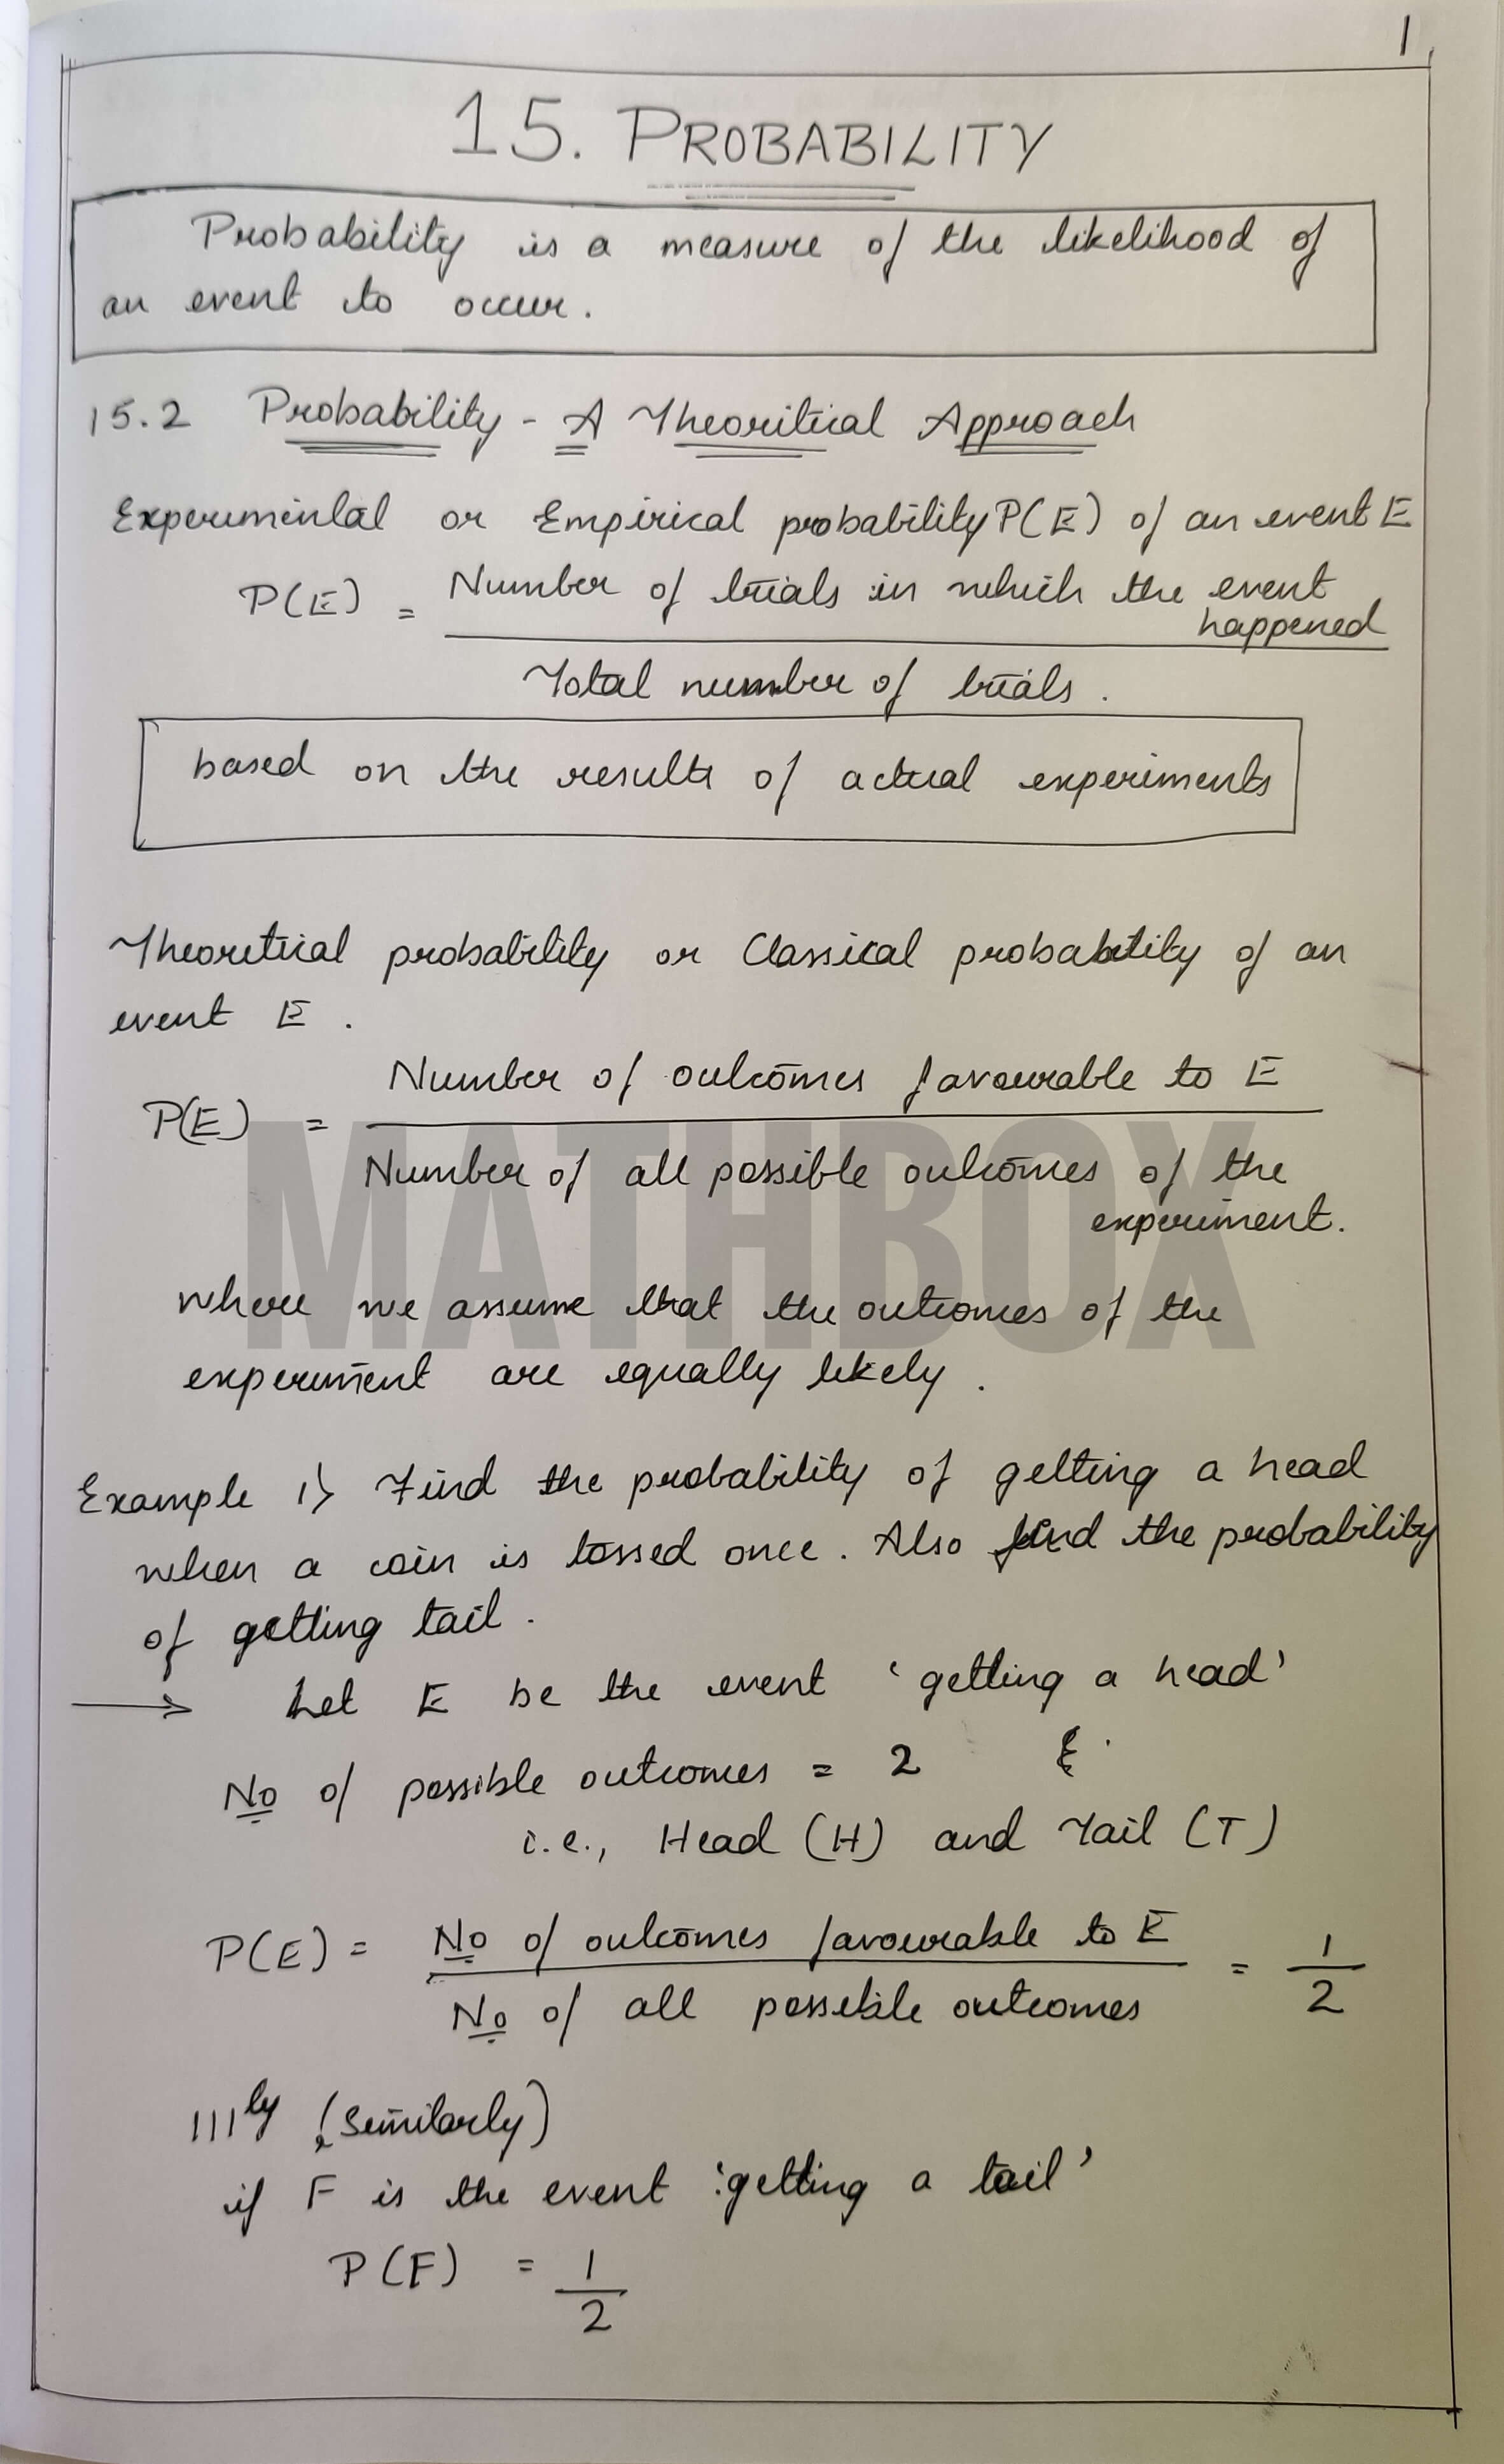 1
15. PROBABILITY
Probability is a measure of the likelihood of
an event to occur.
15.2 Probability - A Theoritical Approach
Experimental or Empirical probability P(E) of an event E
P(E) = Number of trials in which the event
happened
Total number of trials.
based on the results of actual experiments
Theoretical probability or Classical probability of an
event E.
Number of outcomes favourable to E
P(E) =
Number of all possible outcomes of the
experiment.
MATHBOX
where we assume that the outcomes of the
experiment are equally likely.
Example 1) Find the probability of getting a head
when a coin is tossed once. Also find the probability
of getting tail.
→ Let E be the event 'getting a head'
No of possible outcomes = 2
i.e., Head (H) and Tail (T)
P(E) = No of outcomes favourable to E = 1
No of all possible outcomes 2
|||ly (Similarly)
if F is the event 'getting a tail'
P(F) = 1
2